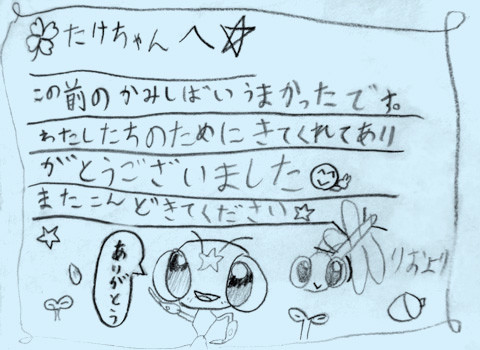 たけちゃんへ
この前のかみしばいうまかったです。
わたしたちのためにきてくれてあり
がとうございました
またこんどきてください
ありがとう
りおより